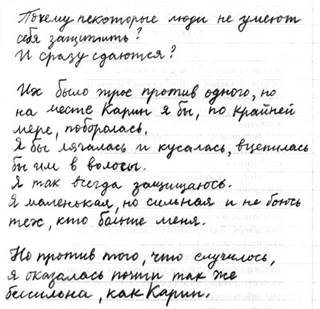 Почему некоторые люди не умеют
себя защитить?
И сразу сдаются?
Их было трое против одного, но
на месте Карин я бы, по крайней
мере, поборолась.
Я бы лягалась и кусалась, вцепилась
бы им в волосы.
Я так всегда защищаюсь.
Я маленькая, но сильная и не боюсь
тех, кто больше меня.
Но против того, что случилось,
я оказалась почти так же
бессильна, как Карин.